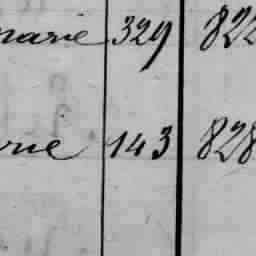 marie 329 822
rie 143 828